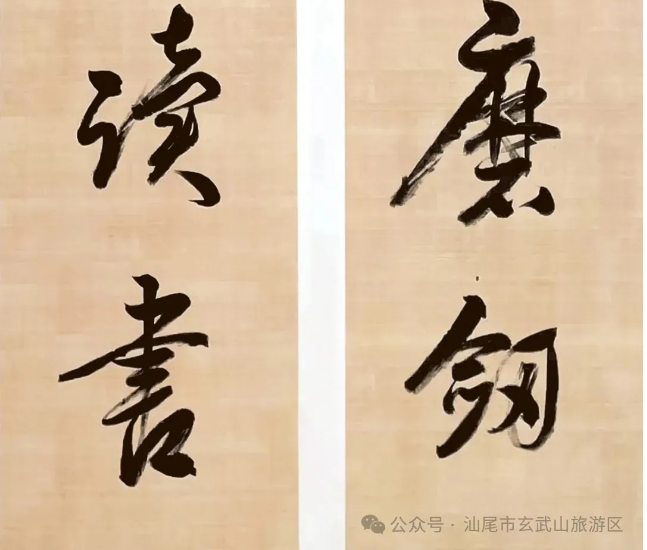 磨劔
读書
公众号 · 汕尾市玄武山旅游区